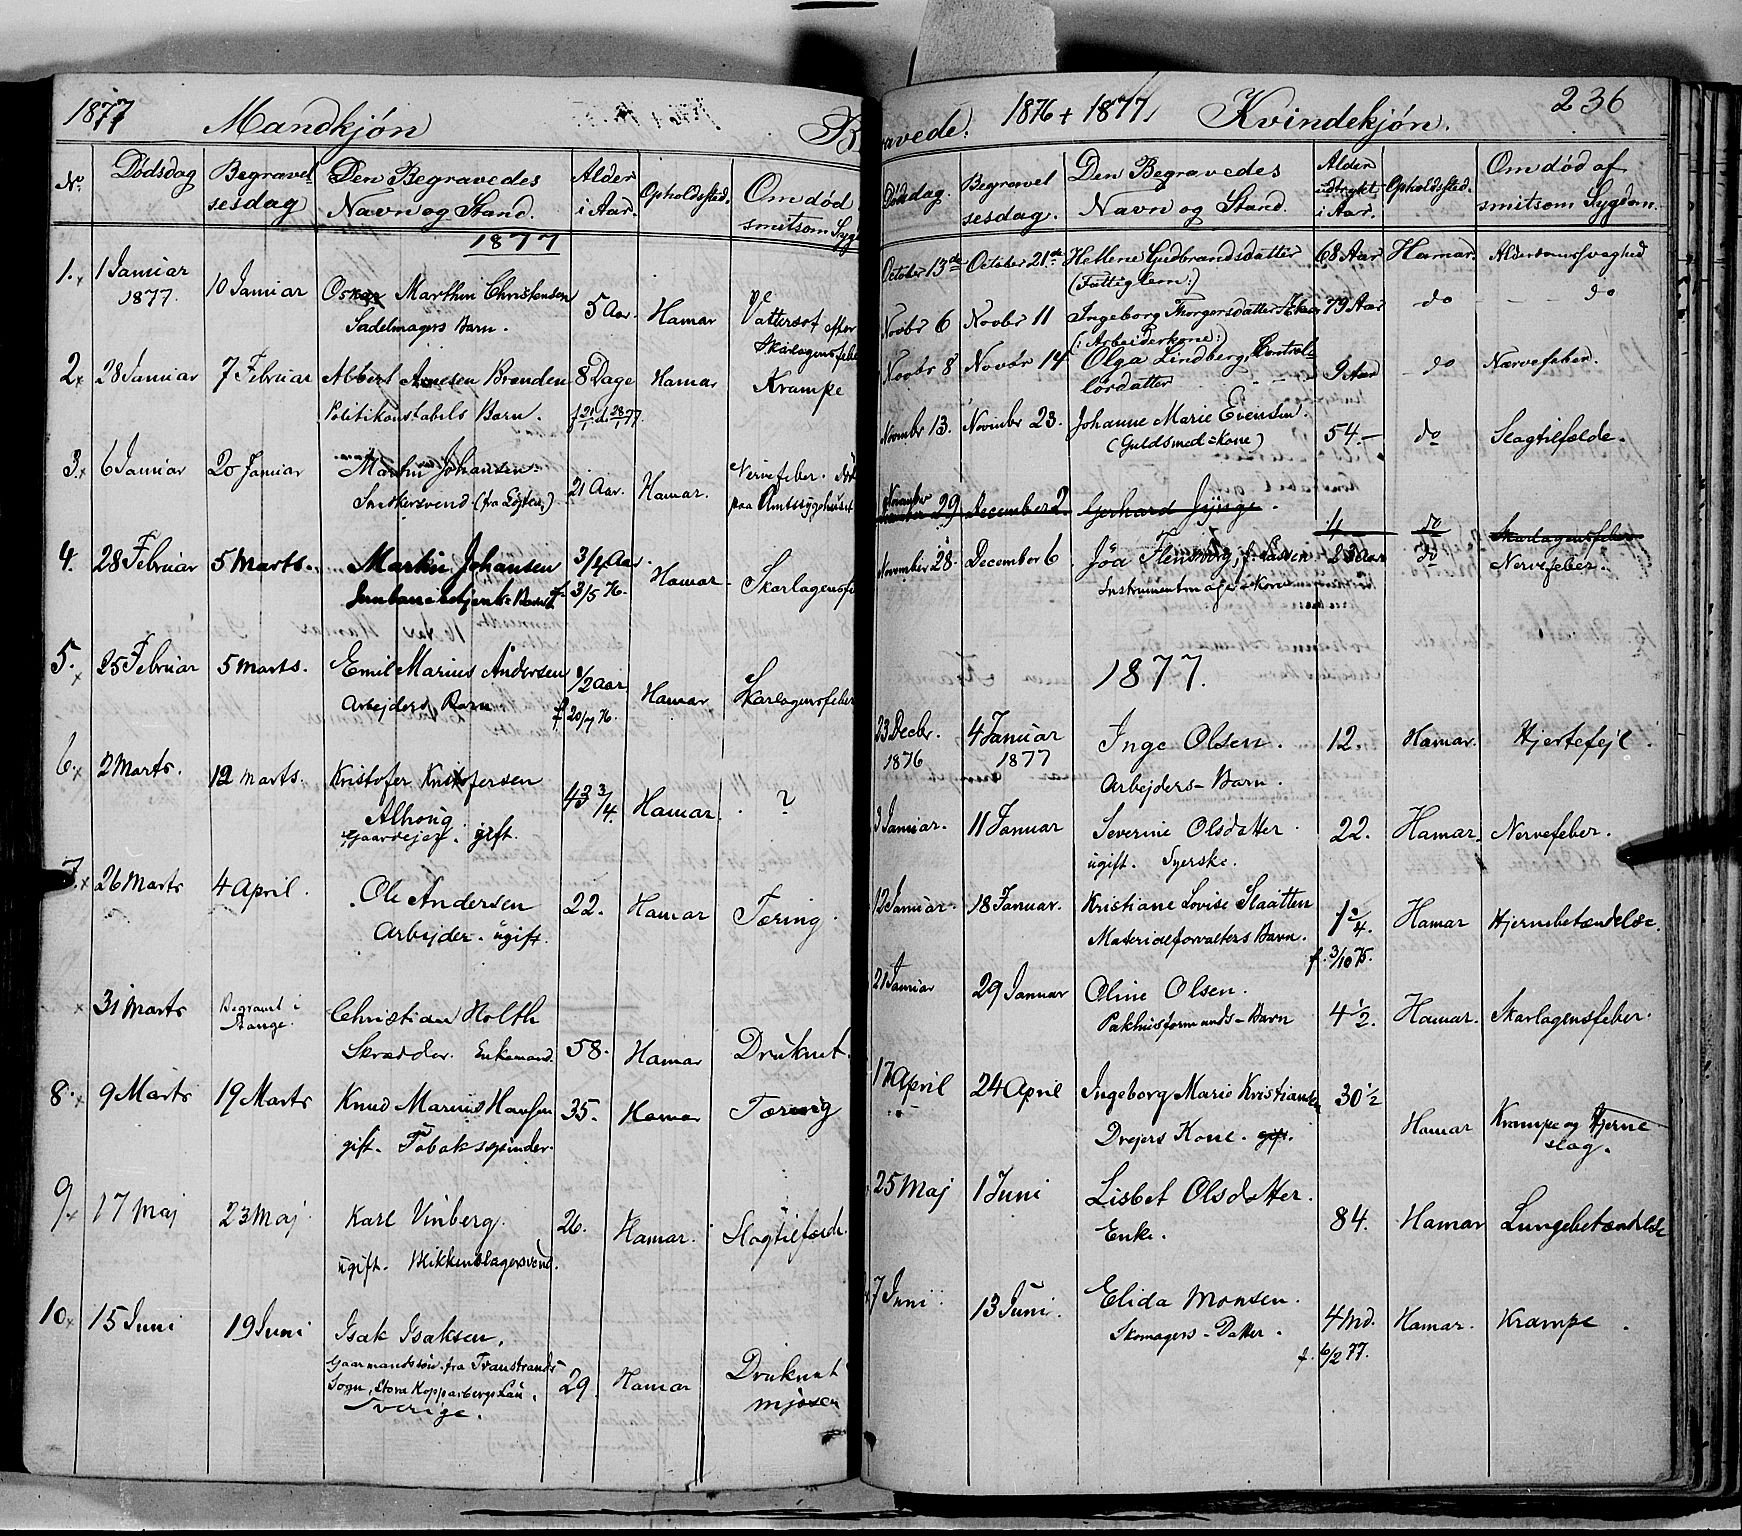 1877 Mandkjøn B
No. Dødsdag Begravelsesdag Den Begravedes Navn og Stand. Alder i Aar. Opholdssted. Om død smitsom Syg
1877
1. 1 Januar 1877. 10 Januar Oskar Marthin Christensen 5 Aar. Hamar Vattersot efter
Sadelmagers Barn. Skarlagensfeber
2. 28 Januar 7 Februar Albert Arnesen Brenden 8 Dage Hamar Krampe
Politikonstabels Barn. f 21/1 d 28/1 77.
3. 6 Januar 20 Januar Martin Johansen 21 Aar. Hamar. Nervefeber. Død
Snedkersvend (fra Løten) paa Amtssygehuset
4. 28 Februar 5 Marts. Martin Johansen 3/4 Aar Hamar Skarlagensfe
Jernbanebetjents Barn f. 3/5 76.
5. 25 Februar 5 Marts. Emil Marius Andersen 1/2 Aar Hamar Skarlagensfeber
Arbejders Barn f 20/9 76.
6. 2 Marts. 12 Marts. Kristofer Kristofersen 43 3/4. Hamar. ?
Alhoug
Gaardejer. gift.
7. 26 Marts 4 April. Ole Andersen 22. Hamar Tæring.
Arbejder. ugift.
31 Marts Begravet i Stange. Christian Holth 58. Hamar Druknet.
Skrædder. Enkemand.
8. 9 Marts 19 Marts Knud Marius Hansen 35. Hamar Tæring
gift. Tobaksspinder.
9. 17 Maj 23 Maj Karl Vinberg. 26. Hamar. Slagtilfælde.
ugift. Blikkenslagersvend.
10. 15 Juni 19 Juni Isak Isaksen, 29. Hamar Druknet
Gaarmandssøn fra Transtrands Mjøsen
Sogn, Stora Kopparbergs Län,
Sverige.
avede. 1876 + 1877. Kvindekjøn. 236
Dødsdag. Begravelsesdag. Den Begravedes Navn og Stand. Alder udtrykt i Aar. Opholdssted. Om død af smitsom Sygdom.
October 13de October 21de Hellene Gudbrandsdatter 68 Aar Hamar. Alderdomssvaghed
(Fattiglem:)
Novbr 6 Novbr 11 Ingeborg Thorgersdatter 79 Aar do do
(: Arbeiderkone:)
Novbr 8 Novbr 14 Olga Lindberg, Kontrol- 9 Aar do Nervefeber.
lørdatter
Novmbr 13. Novimbr 23. Johanne Marie Evensen. 54.- do Slagtilfælde.
(Guldsmed=Kone)
November 29 December 2. Gerhard 4 do Skarlagensfeber
November 28. December 6. Jöa Flensborg, f. Lassen 23 Aar do Nervefeber.
Instrumentmagers Kone
1877.
23 Decbr. 1876 4 Januar 1877 Inge Olsen. 12. Hamar. Hjertefejl.
Arbejders-Barn.
3 Januar. 11 Januar Severine Olsdatter 22. Hamar. Nervefeber.
ugift. Syerske.
12 Januar. 18 Januar. Kristiane Lovise Slaatten 1 2/4. Hamar Hjernebetændelse.
Materialforvalters Barn. f. 3/10 75.
21 Januar 29 Januar Oline Olsen. 4 1/2. Hamar. Skarlagensfeber.
Pakhusformands-Barn
17 April 24 April Ingeborg Marie Kristiansen 30 1/2 Hamar Krampe og Hjerne
Drejers Kone. gift. slag.
25 Maj 1 Juni Lisbet Olsdatter. 84. Hamar Lungebetændelse
Enke.
7 Juni 13 Juni. Elida Monsen. 4 Md. Hamar. Krampe.
Skomagers-Datter. f. 6/2 77.